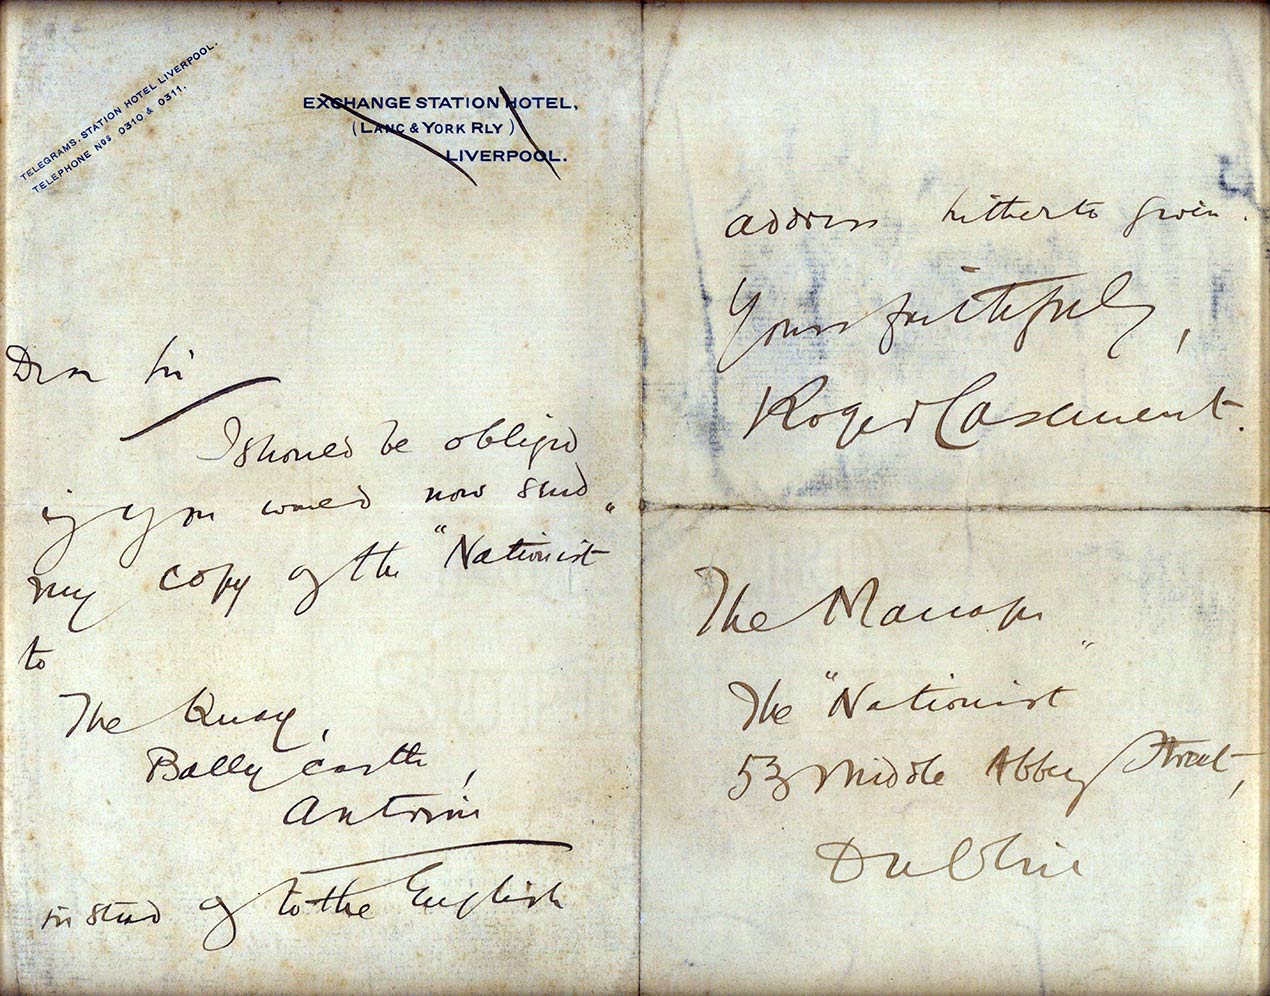 TELEGRAMS, STATION HOTEL LIVERPOOL.
TELEPHONE Nos 0310 & 0311.
EXCHANGE STATION HOTEL,
(LANC & YORK RLY)
LIVERPOOL.
Dear Sir
I should be obliged
if you would now send
my copy of the "Nationist"
to
The Quay,
Ballycastle,
Antrim
instead of to the English
address hitherto given.
Yours faithfully,
Roger Casement.
The Manager
The "Nationist"
53 Middle Abbey Street,
Dublin